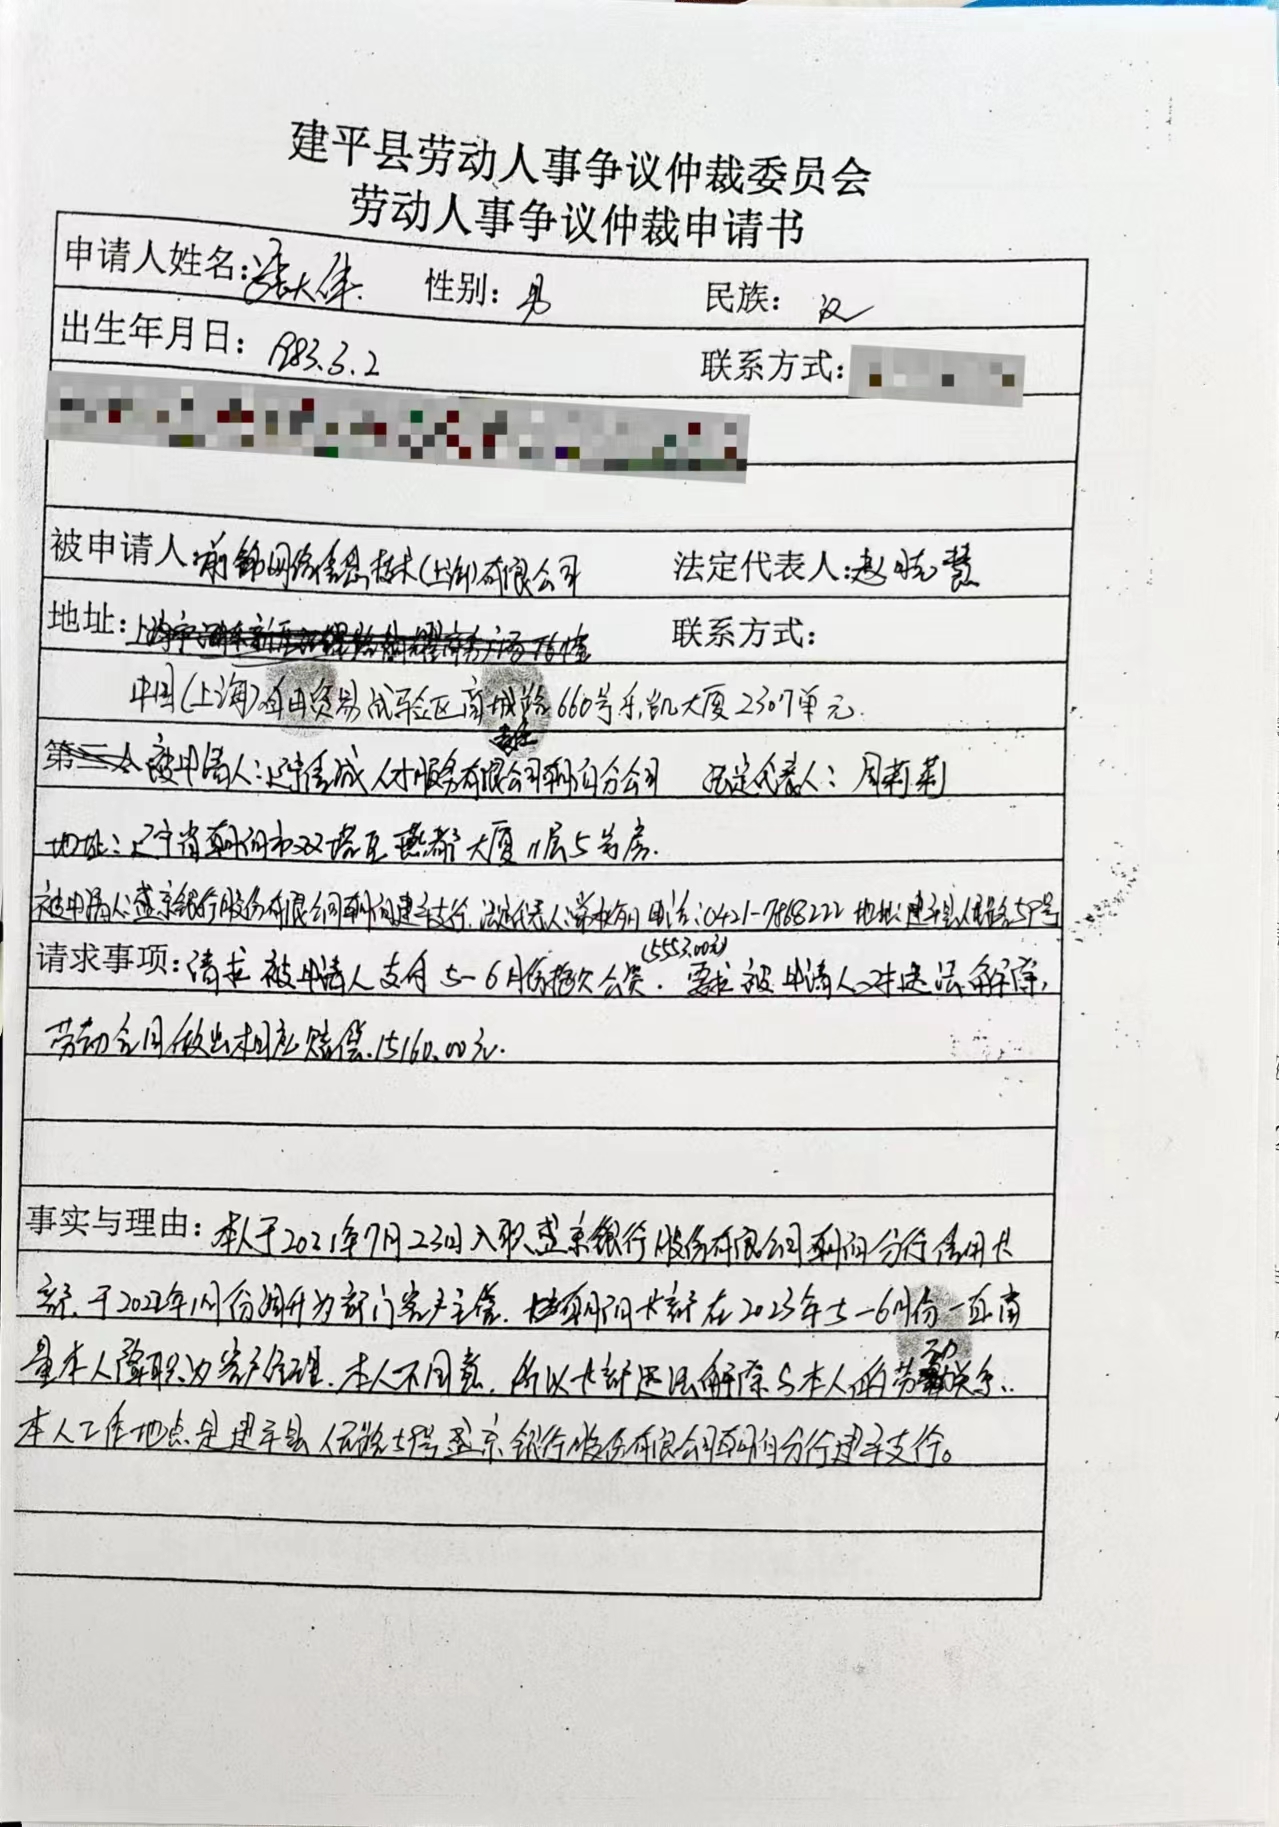 建平县劳动人事争议仲裁委员会
劳动人事争议仲裁申请书
申请人姓名:张大伟. 性别: 男 民族: 汉
出生年月日: 1983.3.2 联系方式:
被申请人:前锦网络信息技术(上海)有限公司 法定代表人:赵晓慧
地址: 联系方式:
中国(上海)自由贸易试验区商城路660号乐凯大厦2307单元.
被申请人:辽宁信诚人才服务有限责任公司朝阳分公司 法定代表人:周莉莉
地址:辽宁省朝阳市双塔区燕都大厦11层5号房.
被申请人:盛京银行股份有限公司朝阳建平支行. 法定代表人: 电话:0421-7868222 地址:建平县人民路59号
请求事项:请求被申请人支付5-6月份拖欠工资(5553.00元). 要求被申请人对违法解除,
劳动合同做出相应赔偿.15160.00元.
事实与理由:本人于2021年7月23日入职盛京银行股份有限公司朝阳分行信用卡
部,于2022年1月份调升为部门客户主管. 朝阳卡部在2023年5-6月份一直商
量本人降职为客户经理.本人不同意.所以卡部违法解除与本人的劳动关系.
本人工作地点是建平县人民路59号盛京银行股份有限公司朝阳分行建平支行。